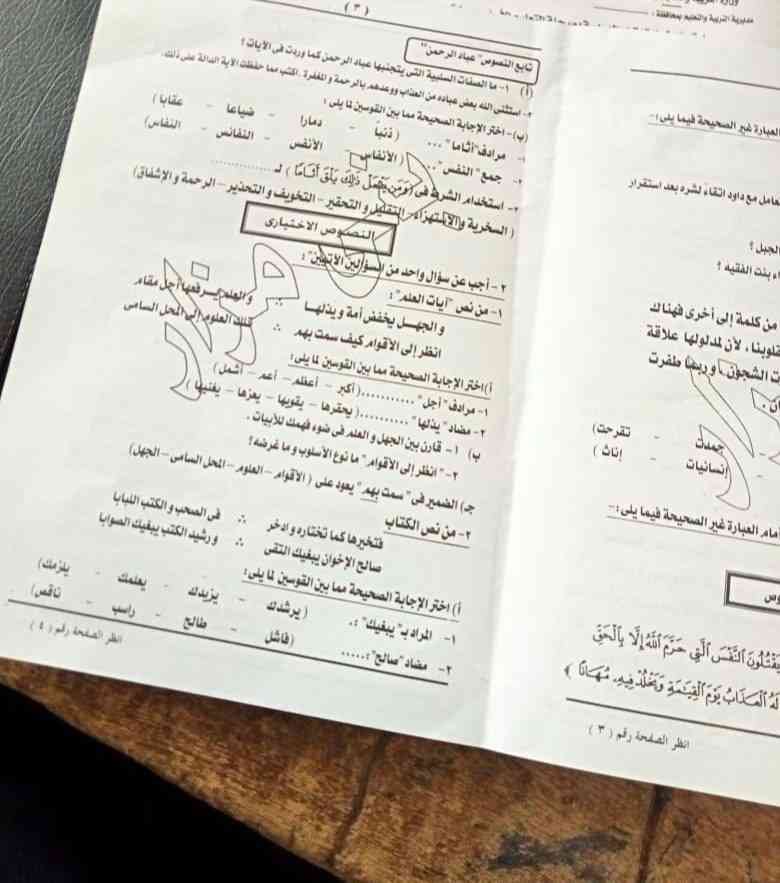 مديرية التربية والتعليم بمحافظة :
العبارة غير الصحيحة فيما يلى :-
عامل مع داود اتقاء لشره بعد استقرار
الجبل ؟
وبنت الفقيه ؟
من كلمة إلى أخرى فهناك
قلوبنا ، لأن لمدلولها علاقة
ت الشجون ، أو ربما طفرت
جمدت - تقرحت )
إنسانيات - إناث )
أمام العبارة غير الصحيحة فيما يلى :-
وص
يَقْتُلُونَ النَّفْسَ الَّتِي حَرَّمَ اللَّهُ إِلَّا بِالْحَقِّ
لَهُ الْعَذَابُ يَوْمَ الْقِيَامَةِ وَيَخْلُدْ فِيهِ مُهَانًا ﴾
انظر الصفحة رقم ( ٣ )
( ٣ )
تابع النصوص "عباد الرحمن"
(أ) ١- ما الصفات السلبية التى يتجنبها عباد الرحمن كما وردت فى الآيات ؟
٢- استثنى الله بعض عباده من العذاب ووعدهم بالرحمة والمغفرة. اكتب مما حفظت الآية الدالة على ذلك.
(ب)- اختر الإجابة الصحيحة مما بين القوسين لما يلى :
- مرادف "أثاما" ... ( ذنبا - دمارا - ضياعا - عقابا )
- جمع "النفس" .. ( الأنفاس - الأنفس - النفائس - النفاس )
٣- استخدام الشرط فى ( وَمَن يَفْعَلْ ذَٰلِكَ يَلْقَ أَثَامًا ) لـ ..............
( السخرية والاستهزاء - التقليل والتحقير - التخويف والتحذير - الرحمة والإشفاق )
النصوص الاختيارى
٢- أجب عن سؤال واحد من السؤالين الآتيين :
١- من نص "آيات العلم" :
و الجهل يخفض أمة ويذلها ∴ والعلم يرفعها أجل مقام
انظر إلى الأقوام كيف سمت بهم ∴ تلك العلوم إلى المحل السامى
أ) اختر الإجابة الصحيحة مما بين القوسين لما يلى :
١- مرادف "أجل" ........... ( أكبر - أعظم - أعم - أشمل )
٢- مضاد "يذلها" ........... ( يحقرها - يقويها - يعزها - يغنيها )
ب) ١- قارن بين الجهل و العلم فى ضوء فهمك للأبيات .
٢- "انظر إلى الأقوام" ما نوع الأسلوب وما غرضه ؟
جـ) الضمير فى "سمت بهم" يعود على ( الأقوام - العلوم - المحل السامى - الجهل )
٢- من نص الكتاب
فتخيرها كما تختاره وادخر ∴ فى الصحب و الكتب اللبابا
صالح الإخوان يبغيك التقى ∴ و رشيد الكتب يبغيك الصوابا
أ) اختر الإجابة الصحيحة مما بين القوسين لما يلى :
١- المراد بـ "يبغيك" : . ( يرشدك - يزيدك - يعلمك - يلزمك )
٢- مضاد "صالح" : ..... ( فاشل - طالح - راسب - ناقص )
انظر الصفحة رقم ( ٤ )